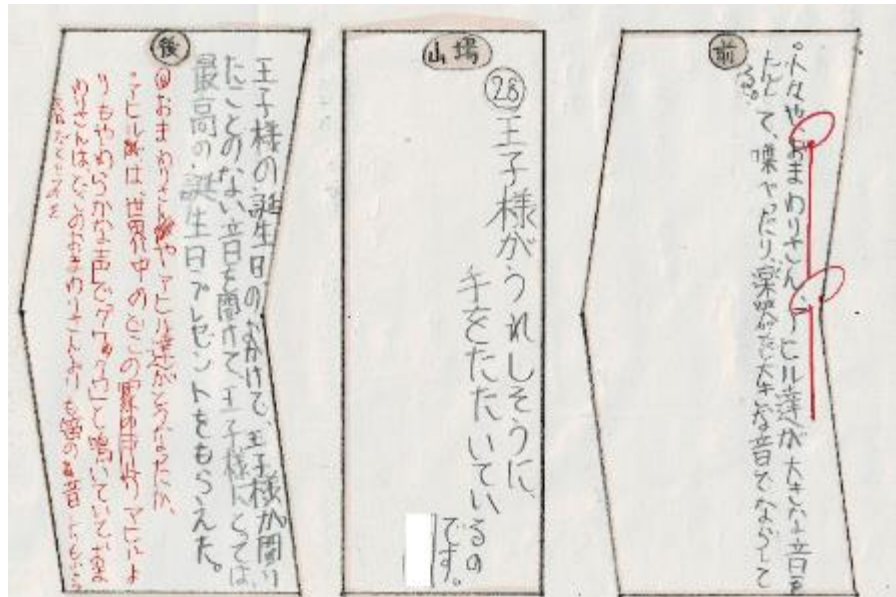 前
・人々や、おまわりさん、アヒル達が大きな音を
たてて、喋ったり、楽器を大きな音でならして
る。
山場
28
王子様がうれしそうに、
手をたたいている
のです。
後
王子様の誕生日のおかげで、王子様が聞い
たことのない音を聞けて、王子様にとっては、
最高の誕生日プレゼントをもらえた。
おまわりさんやアヒル達がどうなったか、
・アヒル達は、世界中のどこの アヒルよ
りもやわらかな声で「グワッグワッ」と鳴いていておま
わりさんは、どこのおまわりさんよりも笛の音